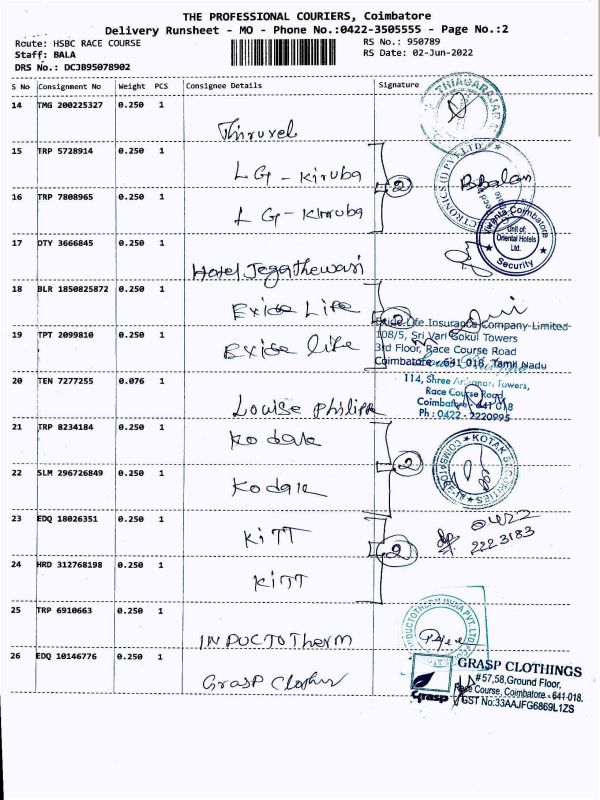 THE PROFESSIONAL COURIERS, Coimbatore
Delivery Runsheet - MO - Phone No.:0422-3505555 - Page No.:2
Route: HSBC RACE COURSE
RS No.: 950789
Staff: BALA
RS Date: 02-Jun-2022
DRS No.: DCJB95078902
S No Consignment No Weight PCS Consignee Details Signature
14 TMG 200225327 0.250 1
Thiruvel
15 TRP 5728914 0.250 1
LG - Kiruba
2
16 TRP 7808965 0.250 1
LG - Kiruba
17 DTY 3666845 0.250 1
Hotel Jegathewari
Vivanta Coimbatore
Unit of:
Oriental Hotels
Ltd.
Security
18 BLR 1850825872 0.250 1
Exide Life
2
19 TPT 2099810 0.250 1
Exide life
Exide Life Insurance Company Limited
108/5, Sri Vari Gokul Towers
3rd Floor, Race Course Road
Coimbatore - 641 018, Tamil Nadu
20 TEN 7277255 0.076 1
Louise Philipe
114, Shree Towers,
Race Course Road,
Coimbatore - 641 018
Ph : 0422 - 2220995
21 TRP 8234184 0.250 1
Kodak
2
22 SLM 296726849 0.250 1
Kodak
KOTAK SECURITIES
23 EDQ 18026351 0.250 1
KiTT
2
0422
2223183
24 HRD 312768198 0.250 1
KiTT
25 TRP 6910663 0.250 1
INDUCTOTherm
26 EDQ 10146776 0.250 1
Grasp Clothin
Grasp
GRASP CLOTHINGS
#57,58,Ground Floor,
Race Course, Coimbatore - 641 018.
GST No:33AAJFG6869L1ZS